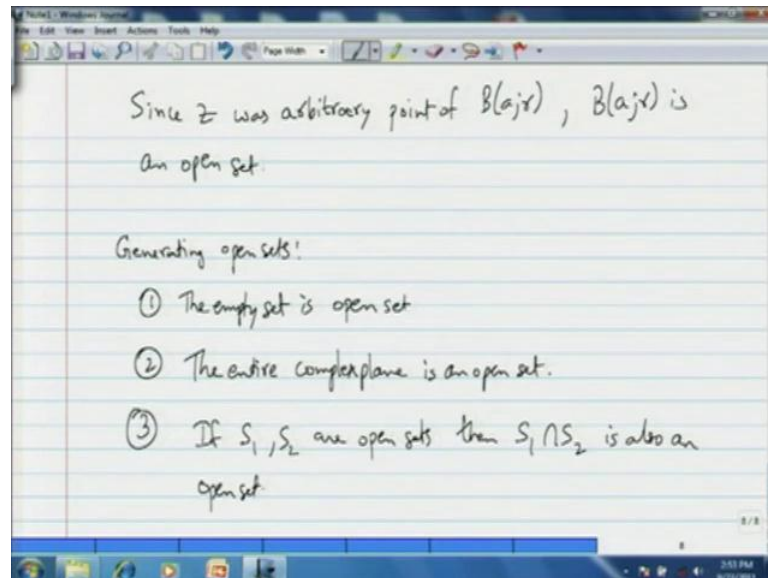 Note1 - Windows Journal
File Edit View Insert Actions Tools Help
Page Width
Since z was arbitrary point of B(a;r), B(a;r) is
an open set.
Generating open sets:
① The empty set is open set
② The entire complex plane is an open set.
③ If S₁, S₂ are open sets then S₁ ∩ S₂ is also an
open set.
8/8
8
2:53 PM